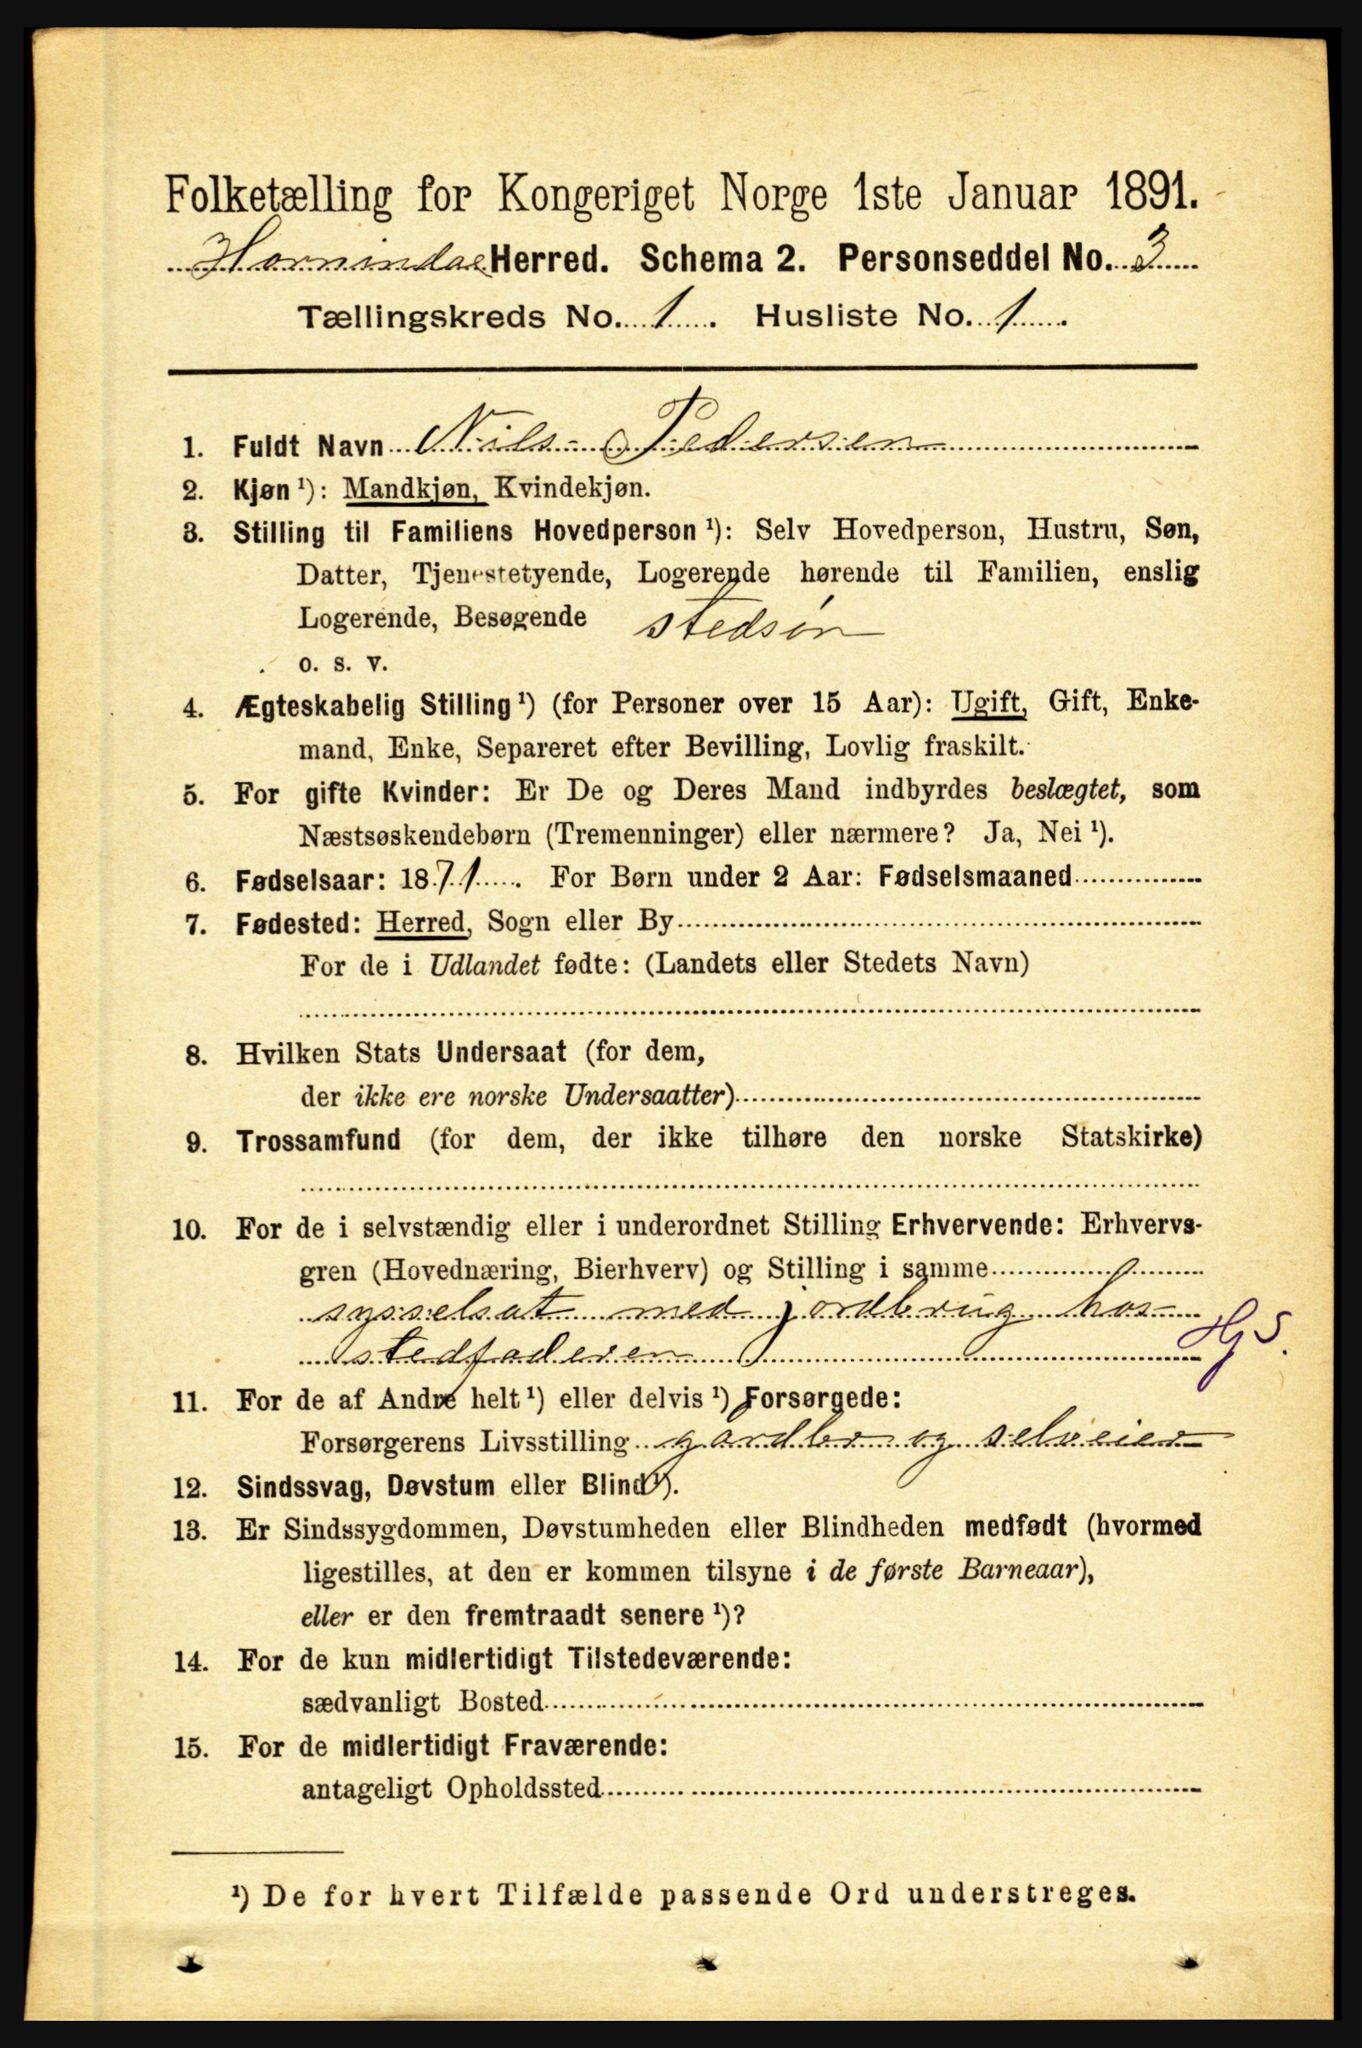 Folketælling for Kongeriget Norge 1ste Januar 1891.
Hornindal Herred. Schema 2. Personseddel No. 3
Tællingskreds No. 1. Husliste No. 1.
1. Fuldt Navn Nils Pedersen
2. Kjøn ¹): Mandkjøn, Kvindekjøn.
3. Stilling til Familiens Hovedperson ¹): Selv Hovedperson, Hustru, Søn,
Datter, Tjenestetyende, Logerende hørende til Familien, enslig
Logerende, Besøgende stedsøn
o. s. v.
4. Ægteskabelig Stilling ¹) (for Personer over 15 Aar): Ugift, Gift, Enke-
mand, Enke, Separeret efter Bevilling, Lovlig fraskilt.
5. For gifte Kvinder: Er De og Deres Mand indbyrdes beslægtet, som
Næstsøskendebørn (Tremenninger) eller nærmere? Ja, Nei ¹).
6. Fødselsaar: 1871. For Børn under 2 Aar: Fødselsmaaned
7. Fødested: Herred, Sogn eller By
For de i Udlandet fødte: (Landets eller Stedets Navn)
8. Hvilken Stats Undersaat (for dem,
der ikke ere norske Undersaatter)
9. Trossamfund (for dem, der ikke tilhøre den norske Statskirke)
10. For de i selvstændig eller i underordnet Stilling Erhvervende: Erhvervs-
gren (Hovednæring, Bierhverv) og Stilling i samme
sysselsat med jordbrug hos
stedfaderen HjS.
11. For de af Andre helt ¹) eller delvis ¹) Forsørgede:
Forsørgerens Livsstilling gardbr og selveier
12. Sindssvag, Døvstum eller Blind ¹).
13. Er Sindssygdommen, Døvstumheden eller Blindheden medfødt (hvormed
ligestilles, at den er kommen tilsyne i de første Barneaar),
eller er den fremtraadt senere ¹)?
14. For de kun midlertidigt Tilstedeværende:
sædvanligt Bosted
15. For de midlertidigt Fraværende:
antageligt Opholdssted
¹) De for hvert Tilfælde passende Ord understreges.